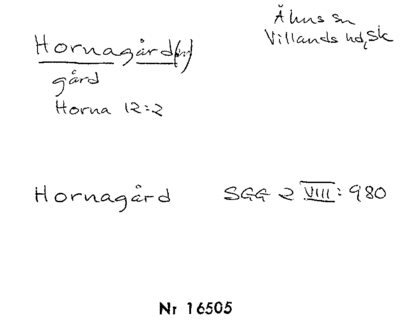 Hornagård(en)
Åhus sn
Villands hd, Sk
gård
Horna 12:2
Hornagård SGG 2 VIII: 980
Nr 16505